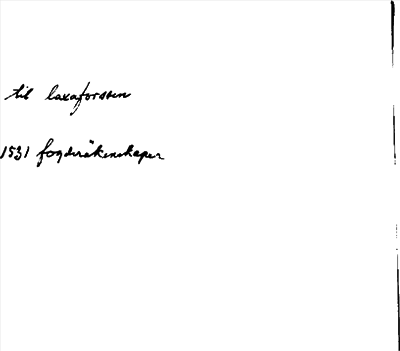 til laxaforssen
1531 fogderäkenskaper